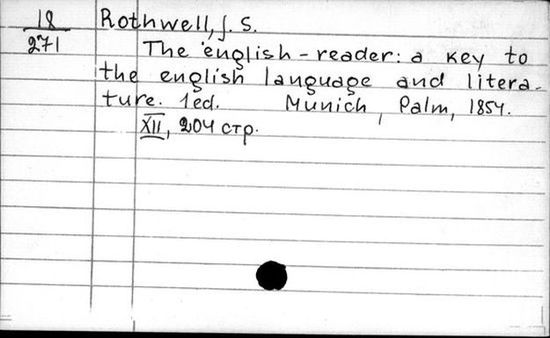 18
271
Rothwell, J. S.
The english-reader: a key to
the english language and litera-
ture. 1ed. Munich, Palm, 1854.
XII, 204 стр.